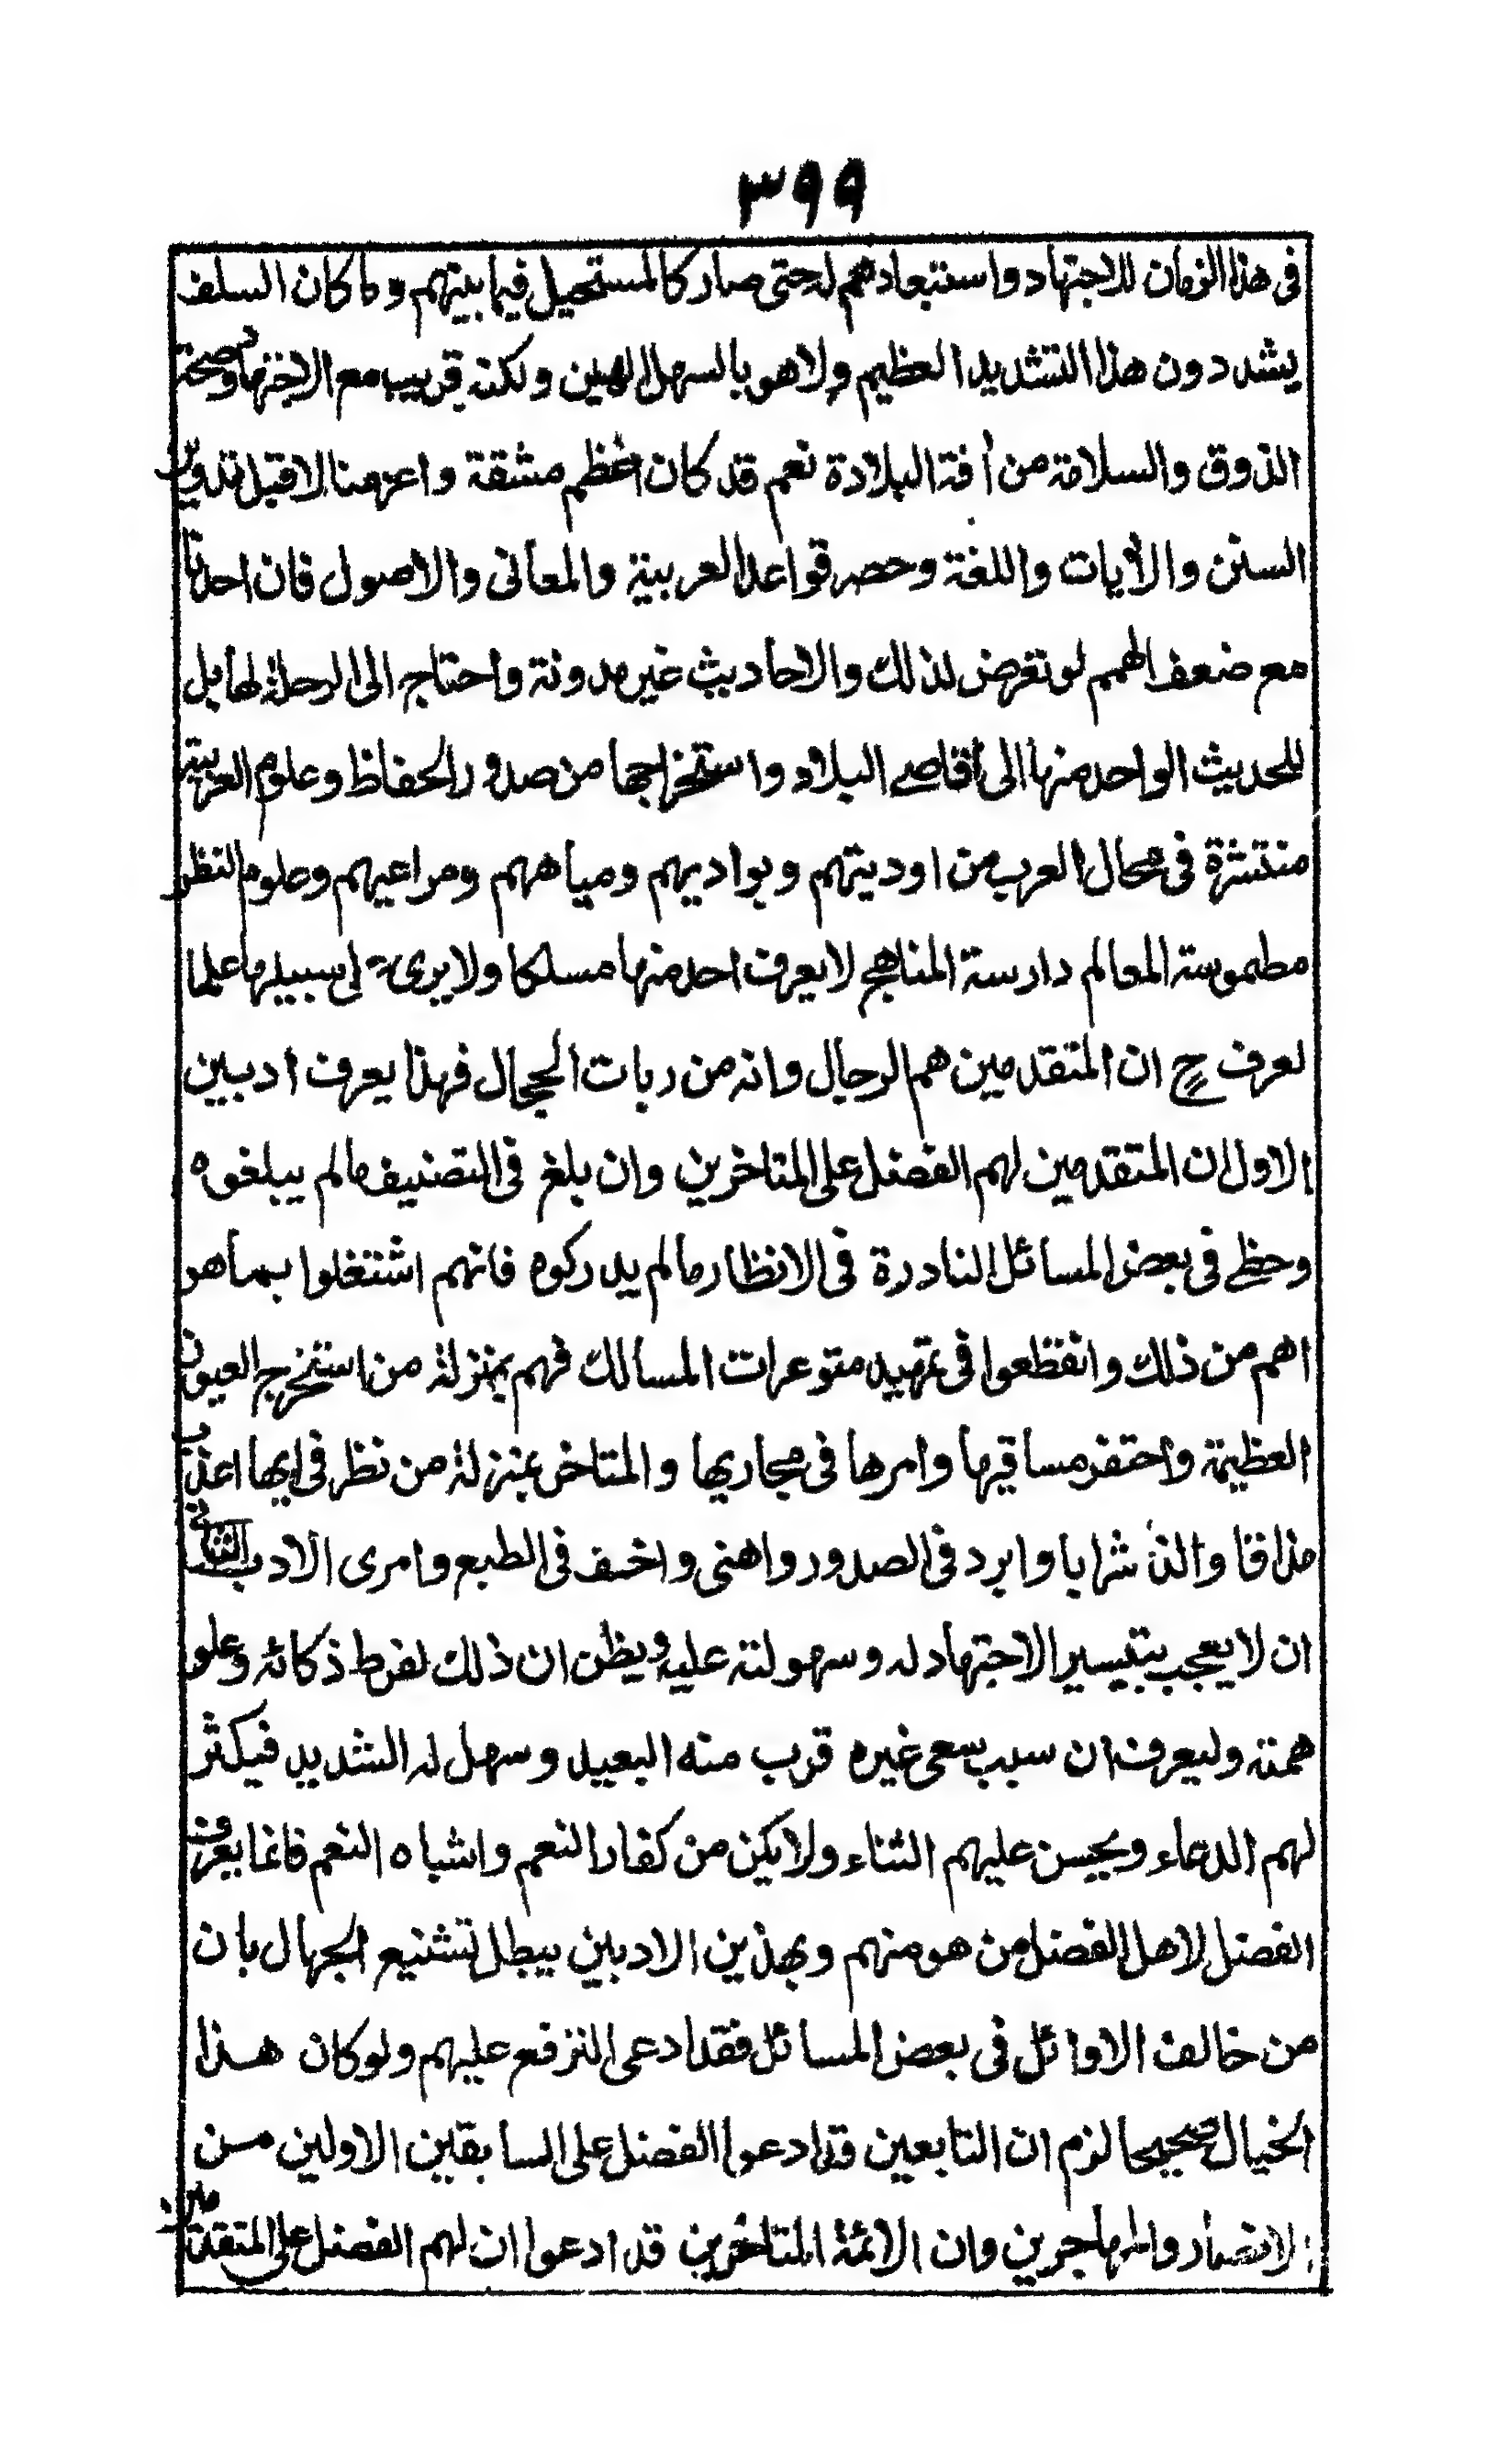 ٣٩٩
فى هذا الزمان للاجتهاد واستبعادهم له حتى صار كالمستحيل فيما بينهم وما كان السلف
يشددون هذا التشديد العظيم ولا هو بالسهل الهين ولكنه قريب مع الاجتهاد وصحة
الذوق والسلامة من أفة البلادة نعم قد كان اعظم مشقة واعز منالا قبل تدوين
السنن والأيات واللغة وحصر قواعد العربية والمعانى والاصول فان احدنا
مع ضعف الهمم لو تعرض لذلك والاحاديث غير مدونة واحتاج الى الرحلة لها بل
للحديث الواحد منها الى أقاصے البلاد واستخراجها من صدور الحفاظ وعلوم العربية
منتشرة فى محال العرب من اوديتهم وبواديهم ومياههم ومراعيهم وعلوم النظر
مطموسة المعالم دارسة المناهج لا يعرف احد منها مسلكا ولا يرى لى سبيلها علما
لعرف ح ان المتقدمين هم الرجال وانه من ربات الحجال فهذا يعرف ادبين
الاول ان المتقدمين لهم الفضل على المتاخرين وان بلغ فى التصنيف مالم يبلغوه
وحظے فى بعض المسائل النادرة فى الانظار مالم يدركوه فانهم اشتغلوا بما هو
اهم من ذلك وانقطعوا فى تمهيد متوعرات المسالك فهم بمنزلة من استخرج العيون
العظيمة واحتفر مساقيها وامرها فى مجاريها والمتاخر بمنزلة من نظر فى ايها اعذب
مذاقا والذ شرابا وابرد فى الصدور واهنى واخف فى الطبع وامرى الادب الثانے
ان لا يعجب بتيسير الاجتهاد له وسهولته عليه ويظن ان ذلك لفرط ذكائه وعلو
همته وليعرف ان سبب سعى غيره قرب منه البعيد وسهل له الشديد فيكثر
لهم الدعاء ويحسن عليهم الثناء ولا يكن من كفار النعم واشباه النعم فانما يعرف
الفضل لاهل الفضل من هو منهم وبهذين الادبين يبطل تشنيع الجهال بان
من خالف الاوائل فى بعض المسائل فقد ادعى الترفع عليهم ولو كان هذا
الخيال صحيحا لزم ان التابعين قد ادعوا الفضل على السابقين الاولين من
الانصار والمهاجرين وان الائمة المتاخرين قد ادعوا ان لهم الفضل على المتقدمين